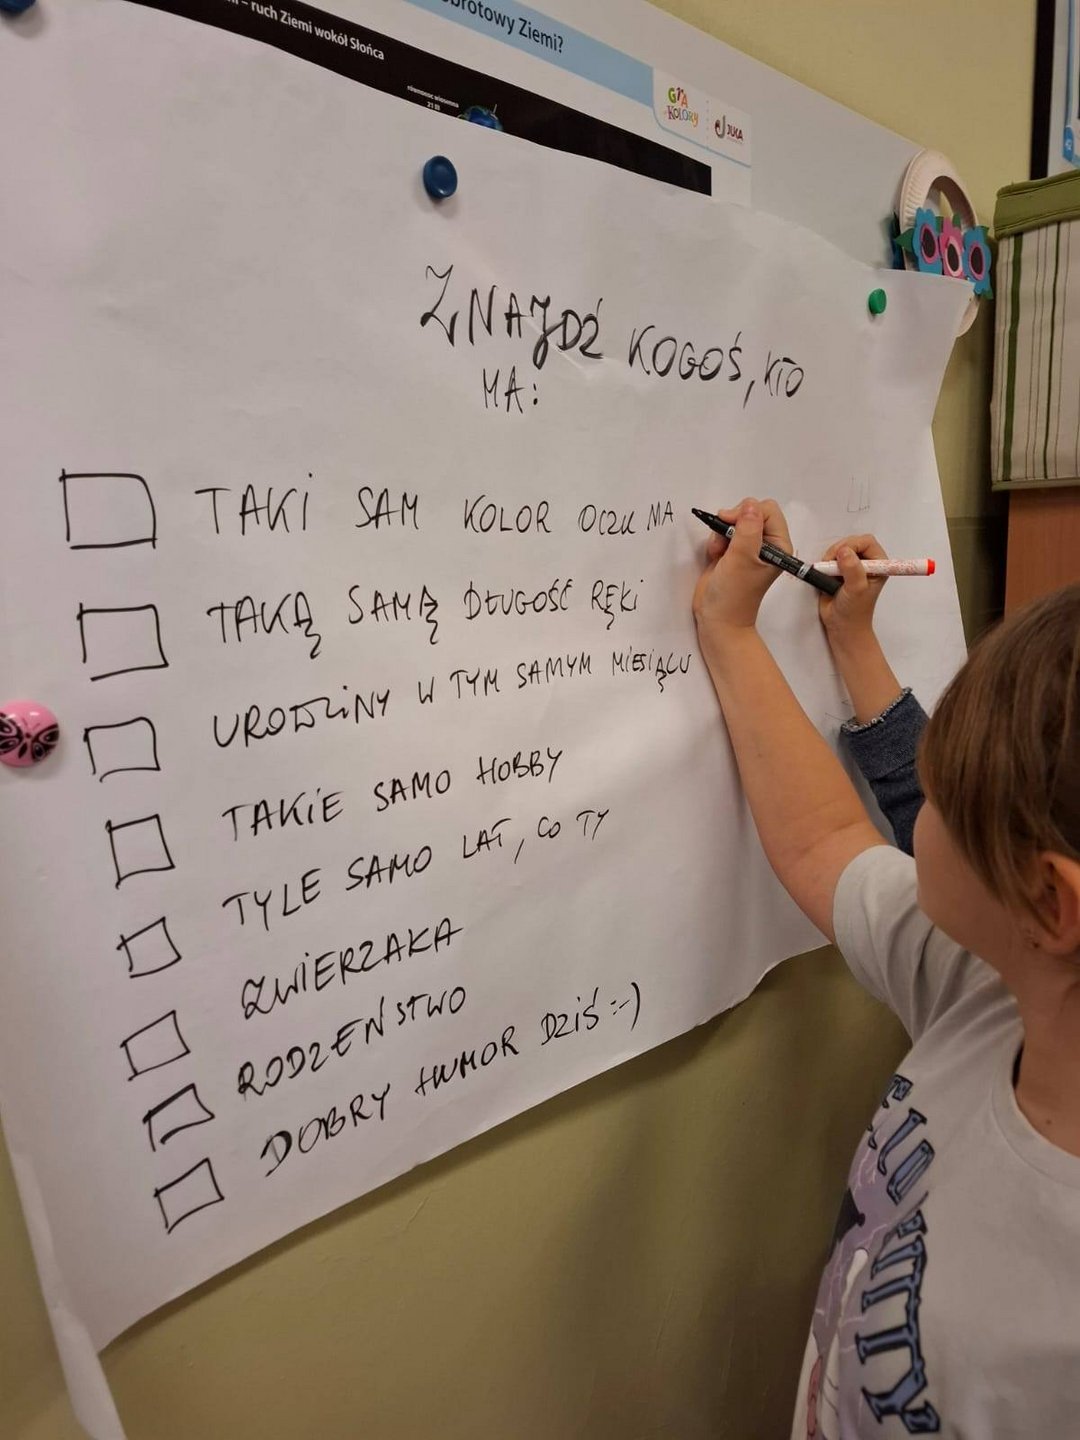 – ruch Ziemi wokół Słońca
obrotowy Ziemi?
równonoc wiosenna
21 III
GRA
W KOLORY
JUKA
ZNAJDŹ KOGOŚ, KTO
MA:
TAKI SAM KOLOR OCZU MA
TAKĄ SAMĄ DŁUGOŚĆ RĘKI
URODZINY W TYM SAMYM MIESIĄCU
TAKIE SAMO HOBBY
TYLE SAMO LAT, CO TY
ZWIERZAKA
RODZEŃSTWO
DOBRY HUMOR DZIŚ :-)